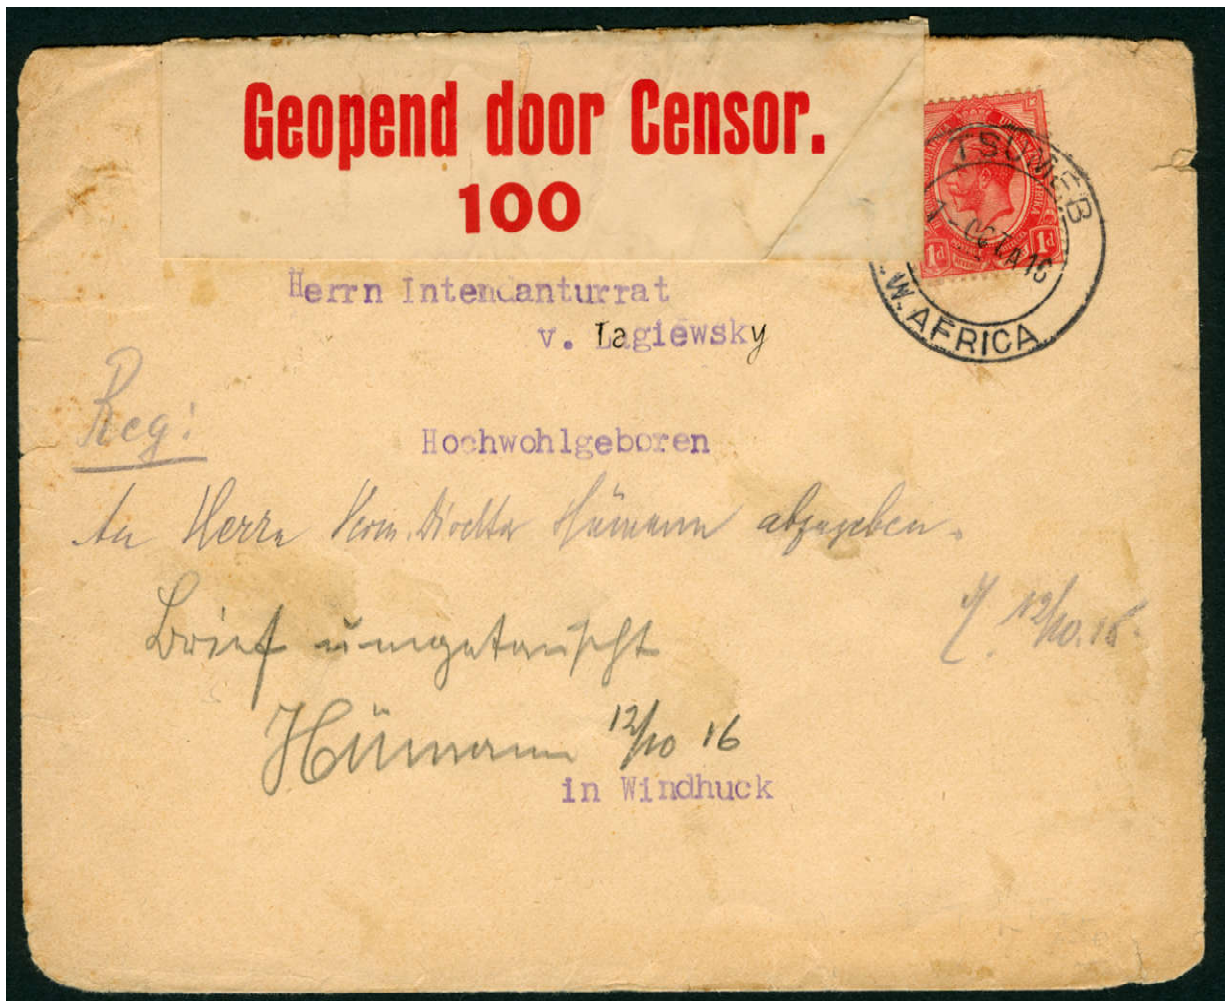 Geopend door Censor.
100
TSUMEB
1 - OCT 16
W. AFRICA
1d 1d
Herrn Intendanturrat
v. Lagiewsky
Reg:
Hochwohlgeboren
An Herrn Hümann abzugeben.
12/10.16.
Brief umgetauscht
Hümann 12/10 16
in Windhuck